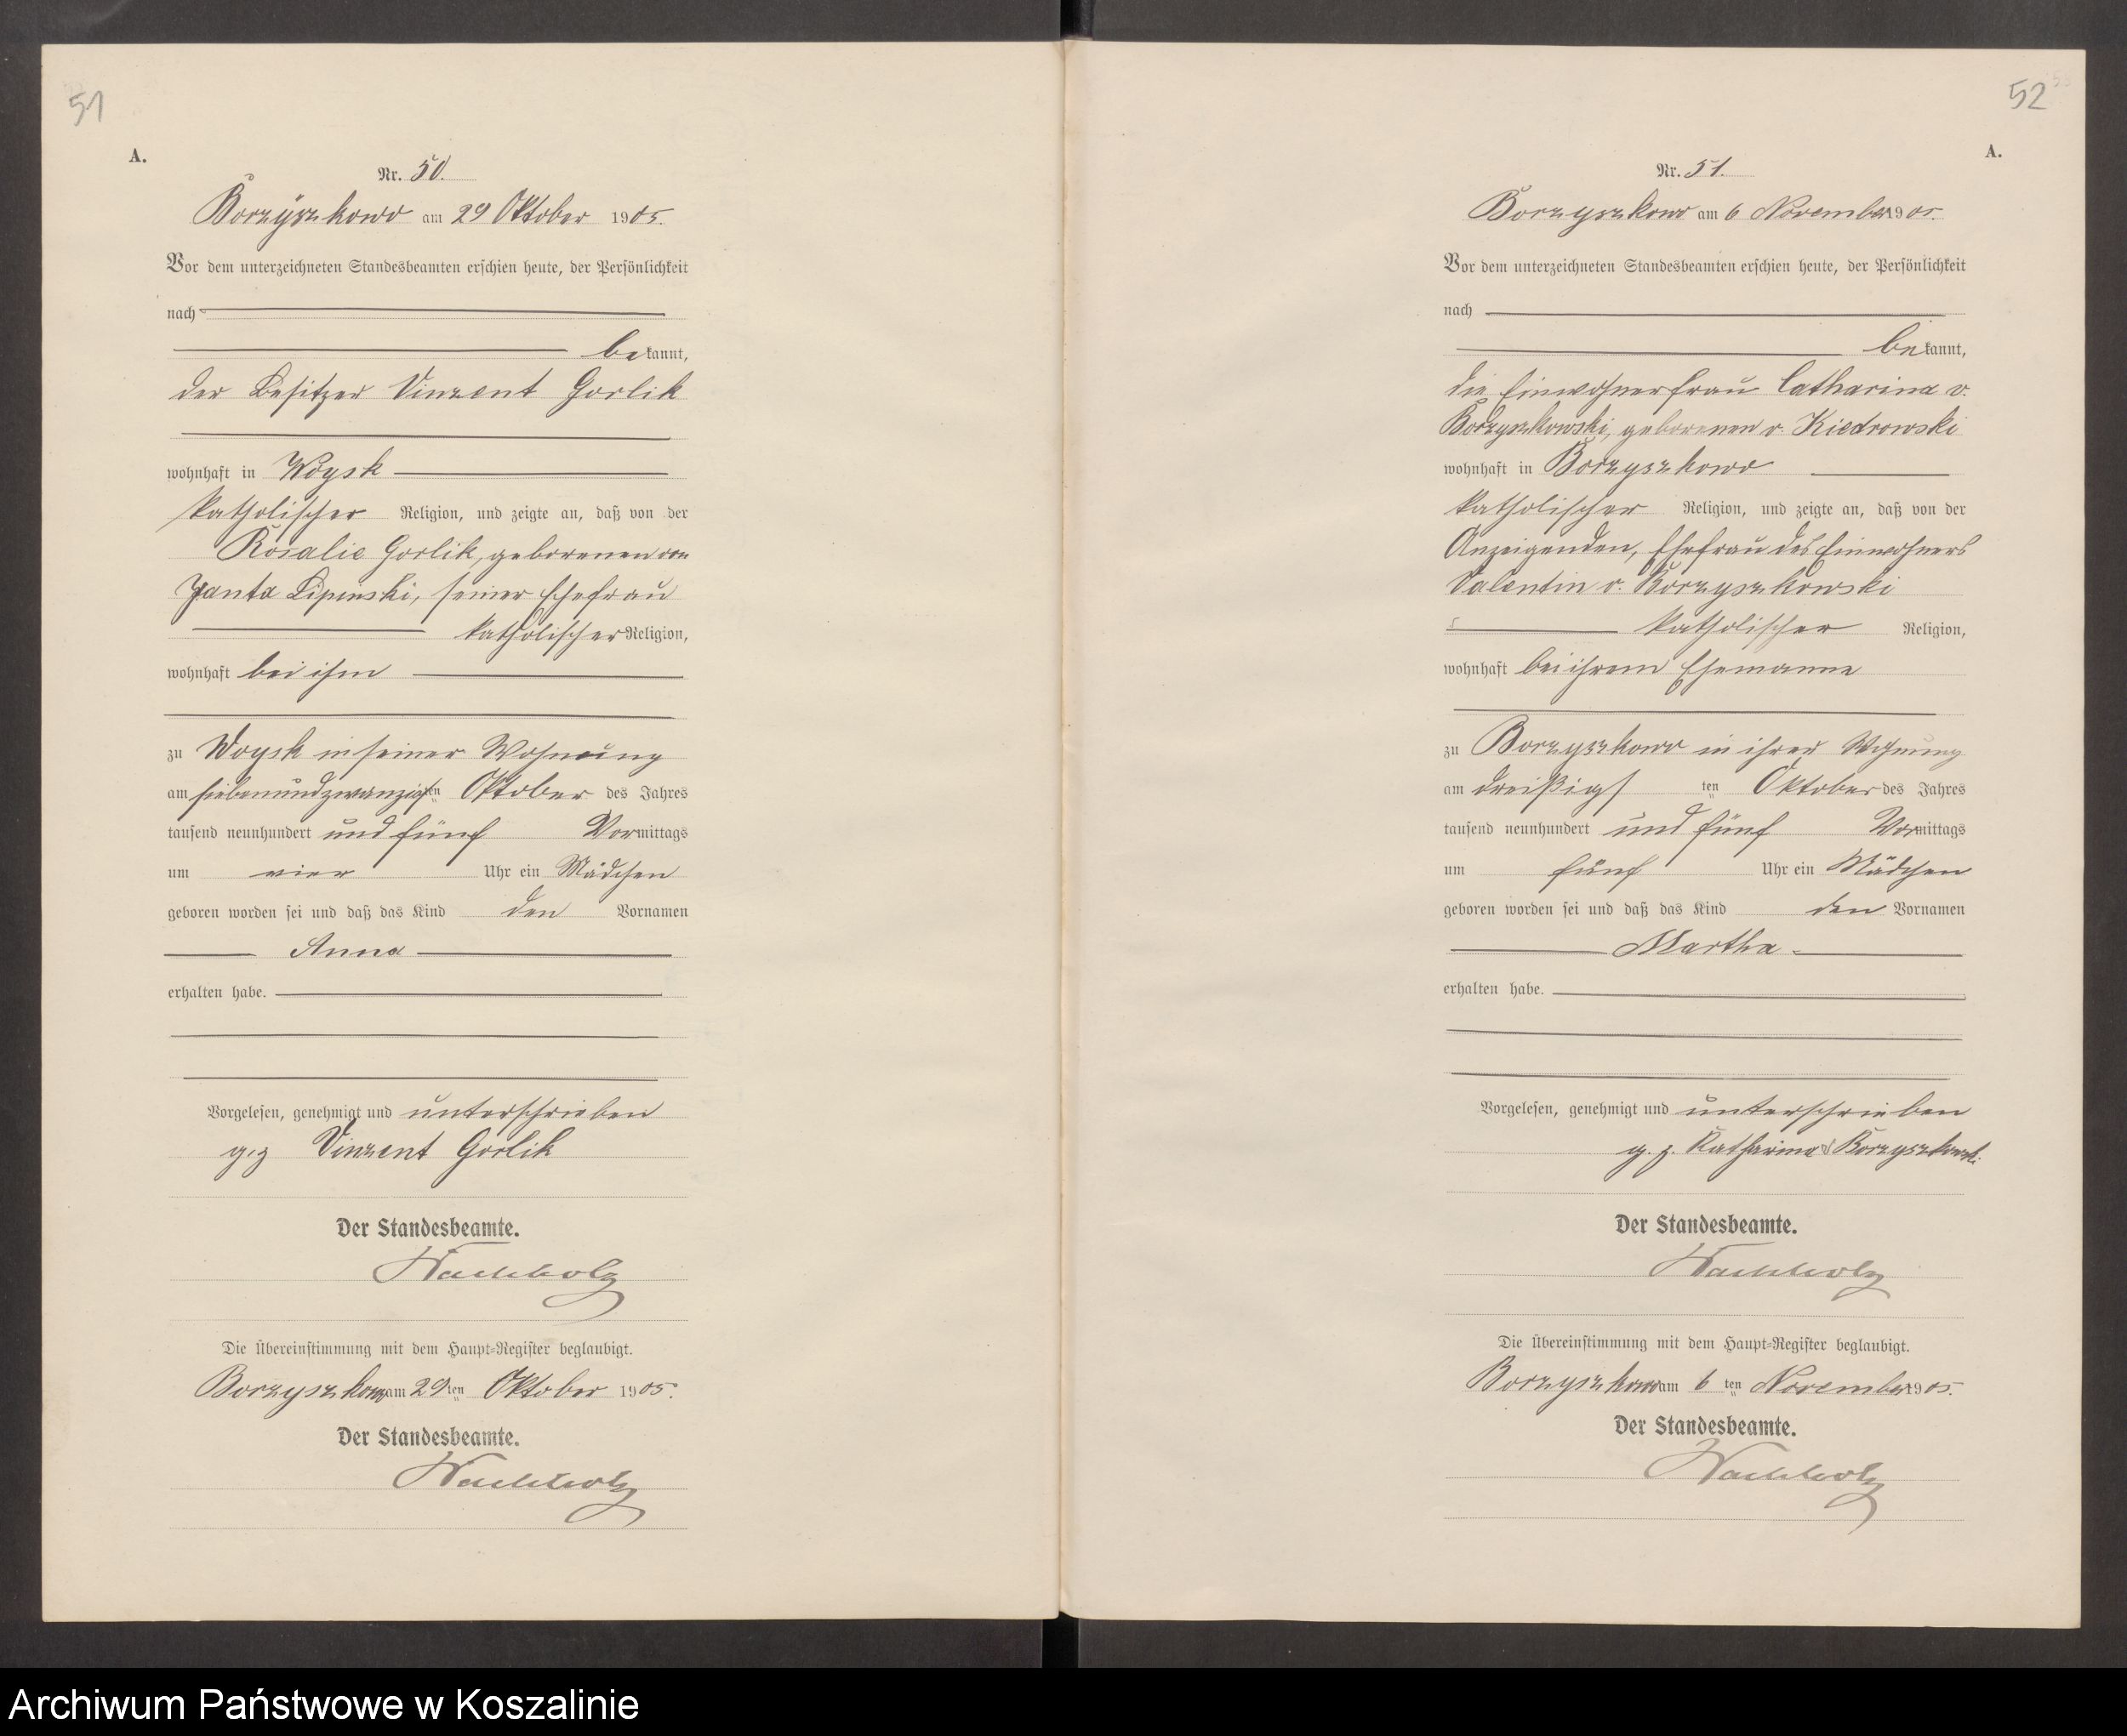 51
A.
Nr. 50.
Borzyszkowo am 29 Oktober 1905.
Vor dem unterzeichneten Standesbeamten erschien heute, der Persönlichkeit
nach
bekannt,
der Besitzer Vinzent Gorlik
wohnhaft in Woysk
katholischer Religion, und zeigte an, daß von der
Rosalie Gorlik, geborenen von
Janta Lipinski, seiner Ehefrau
katholischer Religion,
wohnhaft bei ihm
zu Woysk in seiner Wohnung
am siebenundzwanzigsten Oktober des Jahres
tausend neunhundert und fünf Vormittags
um vier Uhr ein Mädchen
geboren worden sei und daß das Kind den Vornamen
Anna
erhalten habe.
Vorgelesen, genehmigt und unterschrieben
g. z Vinzent Gorlik
Der Standesbeamte.
Wachholz
Die Übereinstimmung mit dem Haupt-Register beglaubigt.
Borzyszkowo am 29ten Oktober 1905.
Der Standesbeamte.
Wachholz
52
A.
Nr. 51.
Borzyszkowo am 6 November 1905.
Vor dem unterzeichneten Standesbeamten erschien heute, der Persönlichkeit
nach
bekannt,
die Einwohnerfrau Catharina v.
Borzyszkowski, geborenen v. Kiedrowski
wohnhaft in Borzyszkowo
katholischer Religion, und zeigte an, daß von der
Anzeigenden, Ehefrau des Einwohners
Valentin v. Borzyszkowski
katholischer Religion,
wohnhaft bei ihrem Ehemanne
zu Borzyszkowo in ihrer Wohnung
am dreißigsten Oktober des Jahres
tausend neunhundert und fünf Vormittags
um fünf Uhr ein Mädchen
geboren worden sei und daß das Kind den Vornamen
Martha
erhalten habe.
Vorgelesen, genehmigt und unterschrieben
g. z. Katharina v Borzyszkowski
Der Standesbeamte.
Wachholz
Die Übereinstimmung mit dem Haupt-Register beglaubigt.
Borzyszkowo am 6ten November 1905.
Der Standesbeamte.
Wachholz
Archiwum Państwowe w Koszalinie